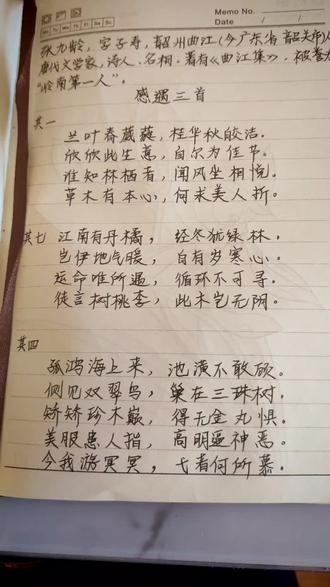 Memo No.
Mo Tu We Th Fr Sa Su
Date / /
张九龄，字子寿，韶州曲江(今广东省韶关市)人
唐代文学家，诗人，名相。著有《曲江集》，被誉为
“岭南第一人”。
感遇三首
其一
兰叶春葳蕤，桂华秋皎洁。
欣欣此生意，自尔为佳节。
谁知林栖者，闻风坐相悦。
草木有本心，何求美人折。
其七 江南有丹橘，经冬犹绿林。
岂伊地气暖，自有岁寒心。
运命唯所遇，循环不可寻。
徒言树桃李，此木岂无阴。
其四
孤鸿海上来，池潢不敢顾。
侧见双翠鸟，巢在三珠树。
矫矫珍木巅，得无金丸惧。
美服患人指，高明逼神恶。
今我游冥冥，弋者何所慕。